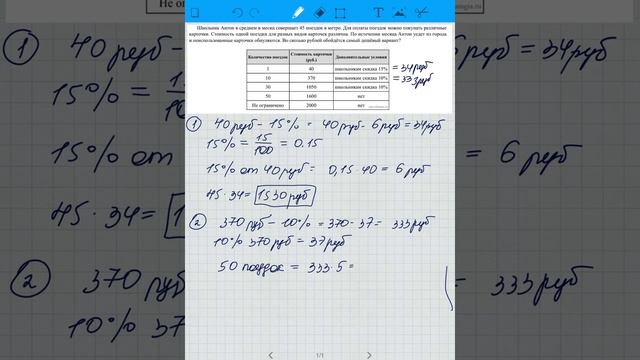 Школьник Антон в среднем в месяц совершает 45 поездок в метро. Для оплаты поездок можно покупать различные
карточки. Стоимость одной поездки для разных видов карточек различна. По истечении месяца Антон уедет из города
и неиспользованные карточки обнуляются. Во сколько рублей обойдётся самый дешёвый вариант?
Количество поездок Стоимость карточки (руб.) Дополнительные условия
1 40 школьникам скидка 15% = 34 руб
10 370 школьникам скидка 10% = 333 руб
30 1050 школьникам скидка 10%
50 1600 нет
Не ограничено 2000 нет
① 40 руб - 15% = 40 руб - 6 руб = 34 руб
15% = 15/100 = 0.15
15% от 40 руб = 0,15 · 40 = 6 руб
45 · 34 = 1530 руб
② 370 руб - 10% = 370 - 37 = 333 руб
10% 370 руб = 37 руб
50 поездок = 333 · 5 =
1/1